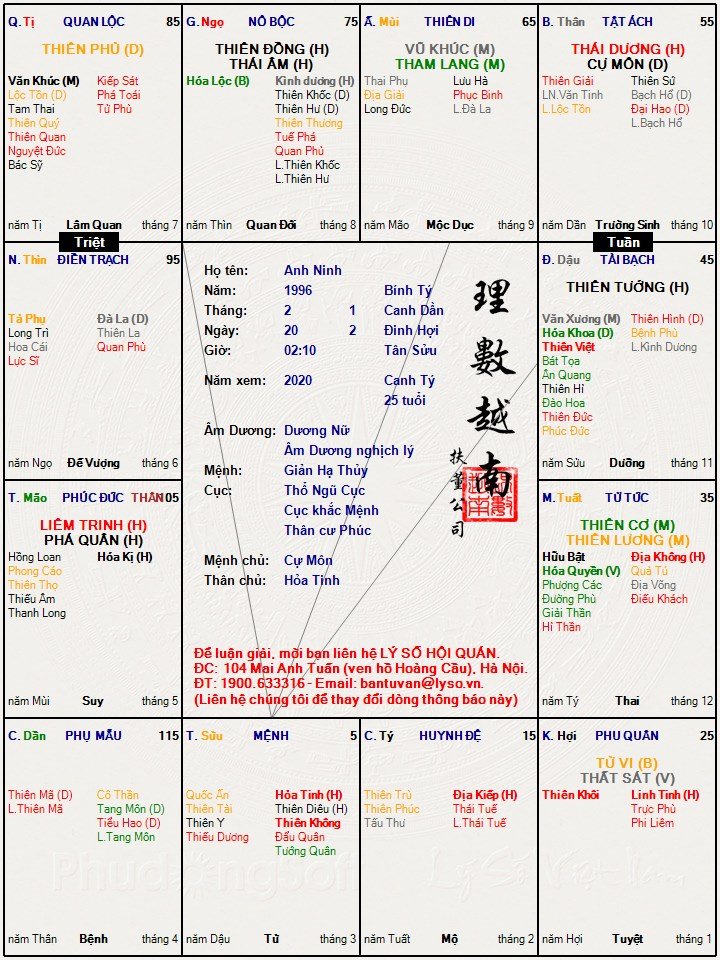 Q. Tị QUAN LỘC 85
THIÊN PHỦ (D)
Văn Khúc (M) Kiếp Sát
Lộc Tồn (D) Phá Toái
Tam Thai Tử Phù
Thiên Quý
Thiên Quan
Nguyệt Đức
Bác Sỹ
năm Tị Lâm Quan tháng 7
G. Ngọ NÔ BỘC 75
THIÊN ĐỒNG (H)
THÁI ÂM (H)
Hóa Lộc (B) Kình dương (H)
Thiên Khốc (D)
Thiên Hư (D)
Thiên Thương
Tuế Phá
Quan Phủ
L.Thiên Khốc
L.Thiên Hư
năm Thìn Quan Đới tháng 8
Ấ. Mùi THIÊN DI 65
VŨ KHÚC (M)
THAM LANG (M)
Thai Phụ Lưu Hà
Địa Giải Phục Binh
Long Đức L.Đà La
năm Mão Mộc Dục tháng 9
B. Thân TẬT ÁCH 55
THÁI DƯƠNG (H)
CỰ MÔN (D)
Thiên Giải Thiên Sứ
LN.Văn Tinh Bạch Hổ (D)
L.Lộc Tồn Đại Hao (D)
L.Bạch Hổ
năm Dần Trường Sinh tháng 10
Triệt
Tuần
N. Thìn ĐIỀN TRẠCH 95
Tả Phụ Đà La (D)
Long Trì Thiên La
Hoa Cái Quan Phù
Lực Sĩ
năm Ngọ Đế Vượng tháng 6
Họ tên: Anh Ninh
Năm: 1996 Bính Tý
Tháng: 2 1 Canh Dần
Ngày: 20 2 Đinh Hợi
Giờ: 02:10 Tân Sửu
Năm xem: 2020 Canh Tý
25 tuổi
Âm Dương: Dương Nữ
Âm Dương nghịch lý
Mệnh: Giản Hạ Thủy
Cục: Thổ Ngũ Cục
Cục khắc Mệnh
Thân cư Phúc
Mệnh chủ: Cự Môn
Thân chủ: Hỏa Tinh
理數越南
扶董公司
Để luận giải, mời bạn liên hệ LÝ SỐ HỘI QUÁN.
ĐC: 104 Mai Anh Tuấn (ven hồ Hoàng Cầu), Hà Nội.
ĐT: 1900.633316 - Email: bantuvan@lyso.vn.
(Liên hệ chúng tôi để thay đổi dòng thông báo này)
Đ. Dậu TÀI BẠCH 45
THIÊN TƯỚNG (H)
Văn Xương (M) Thiên Hình (D)
Hóa Khoa (D) Bệnh Phù
Thiên Việt L.Kình Dương
Bát Tọa
Ân Quang
Thiên Hỉ
Đào Hoa
Thiên Đức
Phúc Đức
năm Sửu Dưỡng tháng 11
T. Mão PHÚC ĐỨC THÂN 105
LIÊM TRINH (H)
PHÁ QUÂN (H)
Hồng Loan Hóa Kị (H)
Phong Cáo
Thiên Thọ
Thiếu Âm
Thanh Long
năm Mùi Suy tháng 5
M. Tuất TỬ TỨC 35
THIÊN CƠ (M)
THIÊN LƯƠNG (M)
Hữu Bật Địa Không (H)
Hóa Quyền (V) Quả Tú
Phượng Các Địa Võng
Đường Phù Điếu Khách
Giải Thần
Hỉ Thần
năm Tý Thai tháng 12
C. Dần PHỤ MẪU 115
Thiên Mã (D) Cô Thần
L.Thiên Mã Tang Môn (D)
Tiểu Hao (D)
L.Tang Môn
năm Thân Bệnh tháng 4
T. Sửu MỆNH 5
Quốc Ấn Hỏa Tinh (H)
Thiên Tài Thiên Diêu (H)
Thiên Y Thiên Không
Thiếu Dương Đẩu Quân
Tướng Quân
năm Dậu Tử tháng 3
C. Tý HUYNH ĐỆ 15
Thiên Trù Địa Kiếp (H)
Thiên Phúc Thái Tuế
Tấu Thư L.Thái Tuế
năm Tuất Mộ tháng 2
K. Hợi PHU QUÂN 25
TỬ VI (B)
THẤT SÁT (V)
Thiên Khôi Linh Tinh (H)
Trực Phù
Phi Liêm
năm Hợi Tuyệt tháng 1
Lý Số Việt Nam